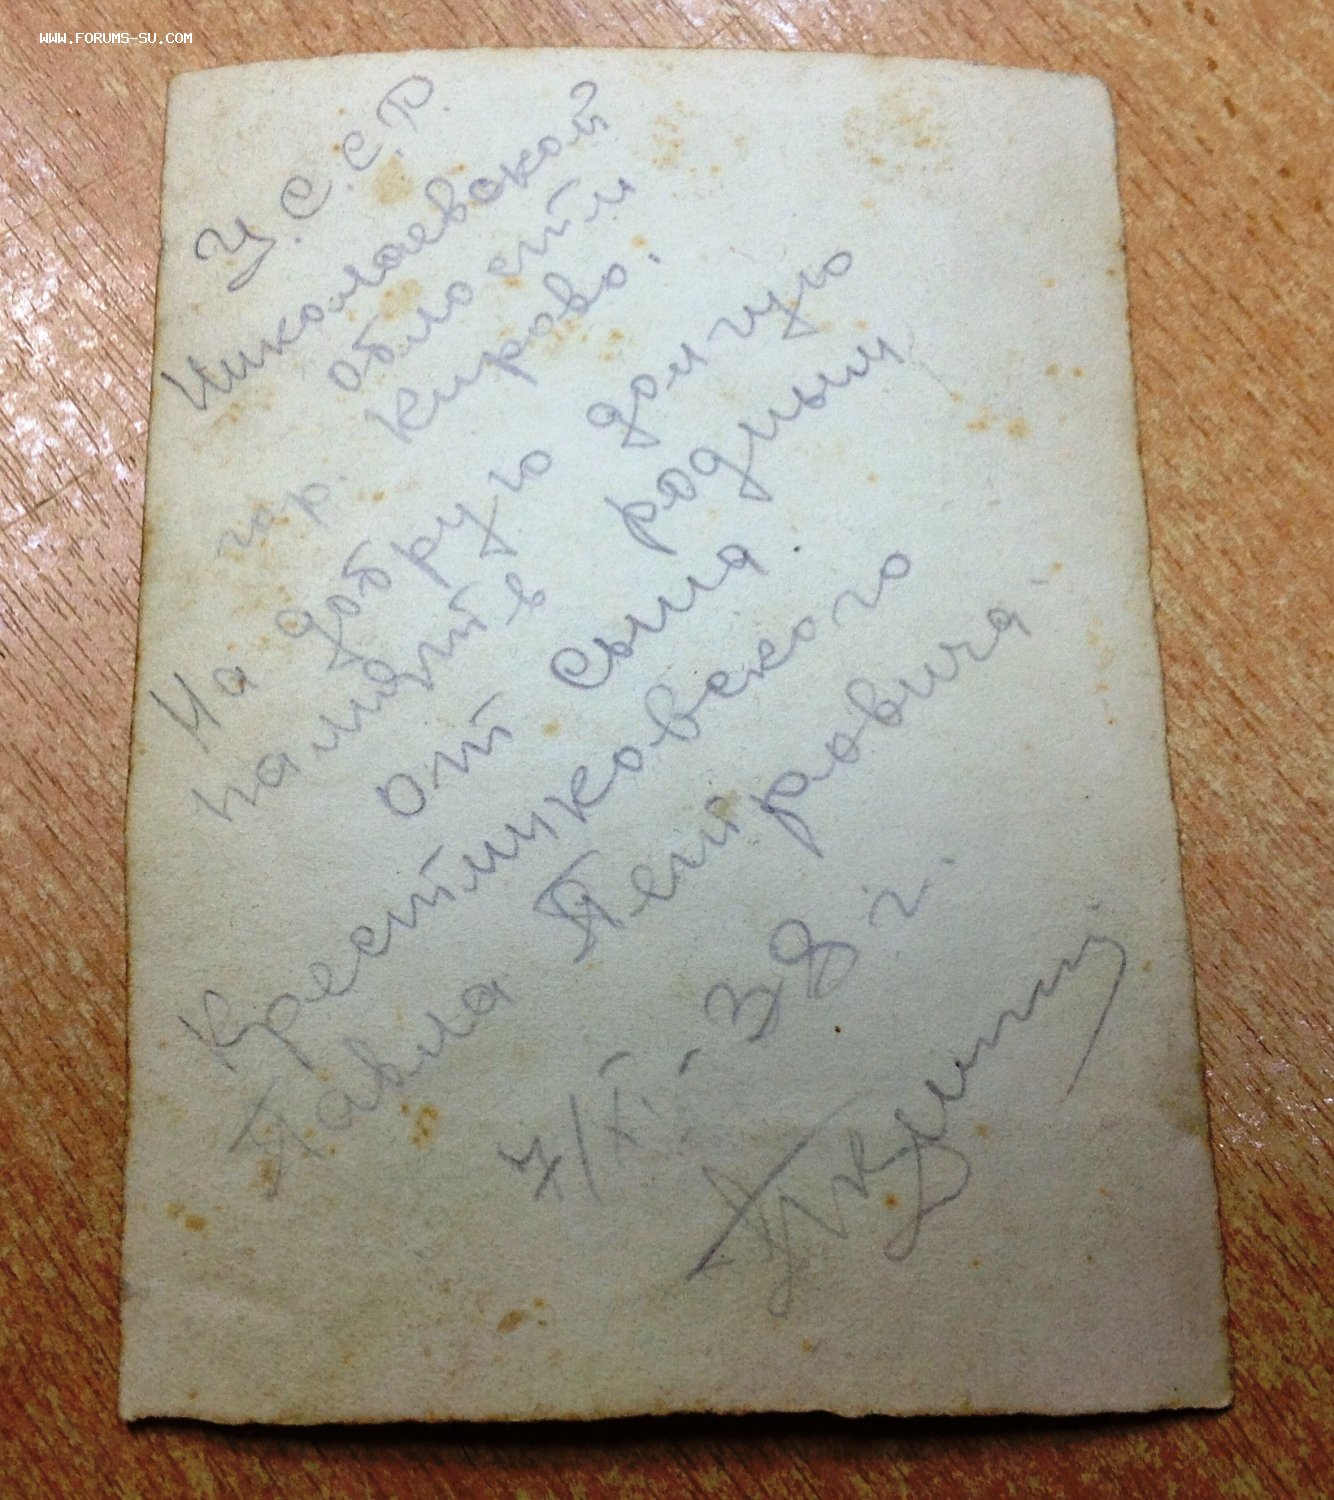 WWW.FORUMS-SU.COM
У.С.С.Р.
Николаевской
области
гор. Кирово.
На добрую долгую
память родным
от сына
Крестликовского
Павла Петровича
7/XI - 38 г.